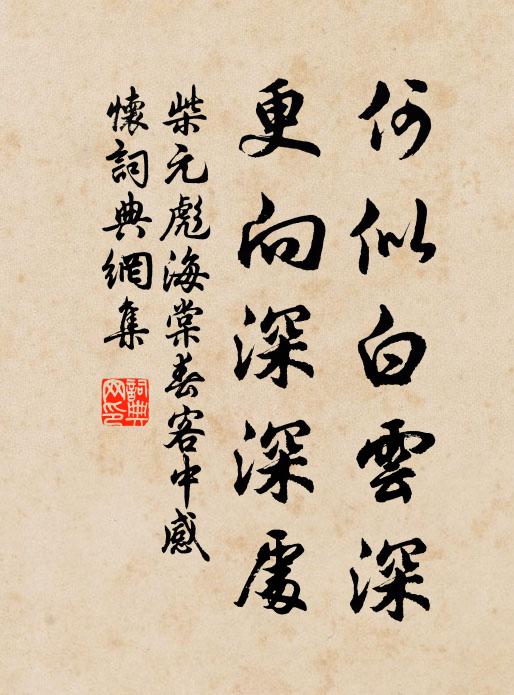 何似白雲深
更向深深處
柴元彪海棠春客中感
懷詞典網集
詞典網印